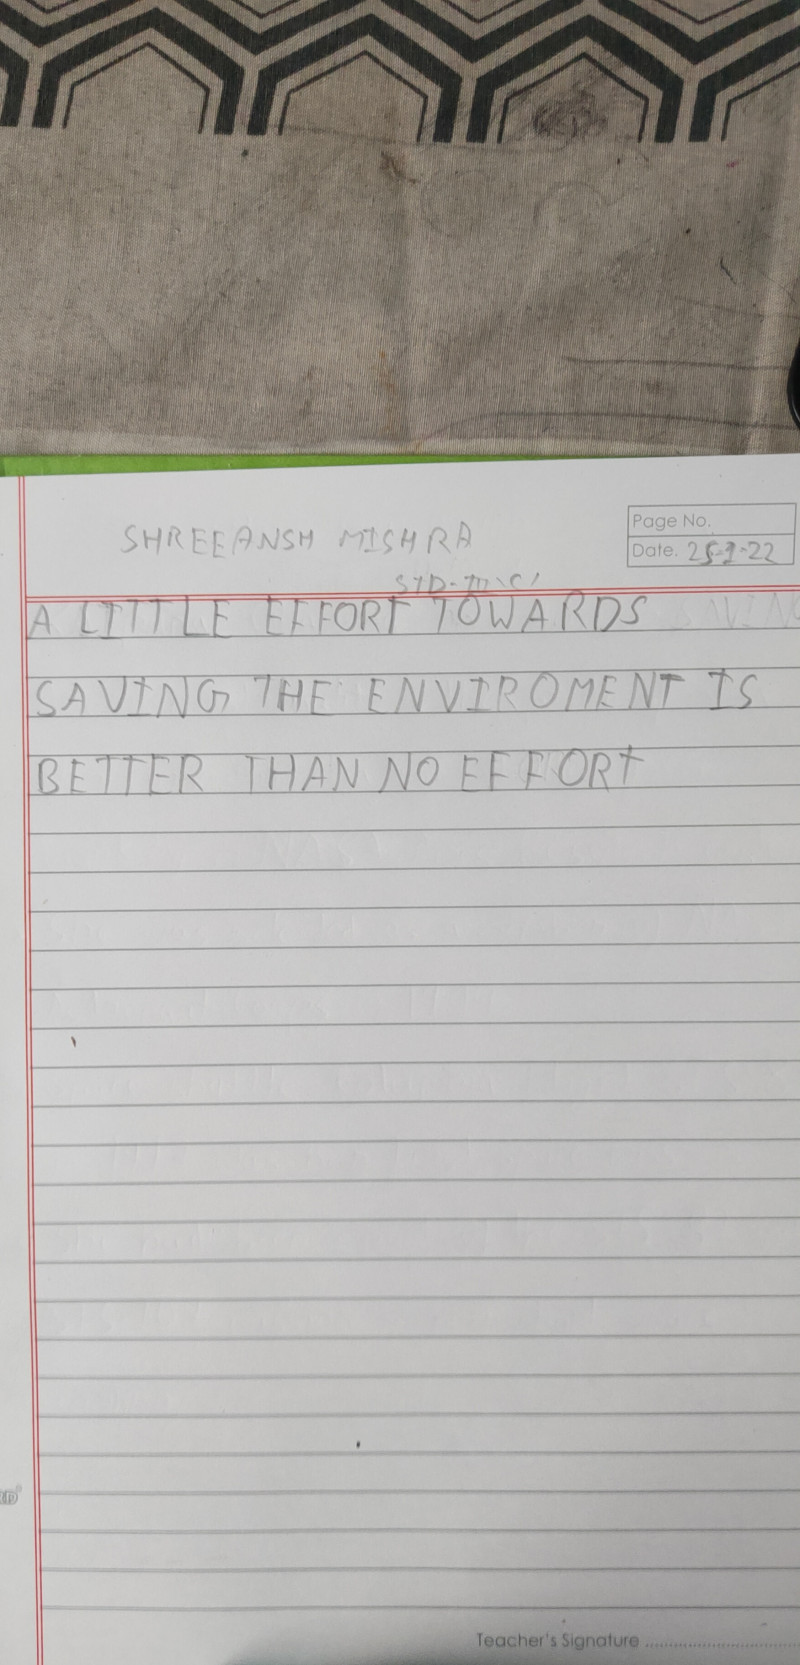 SHREEANSH MISHRA
Page No.
Date. 25-7-22
STD-III 'C'
A LITTLE EFFORT TOWARDS
SAVING THE ENVIROMENT IS
BETTER THAN NO EFFORT
Teacher's Signature